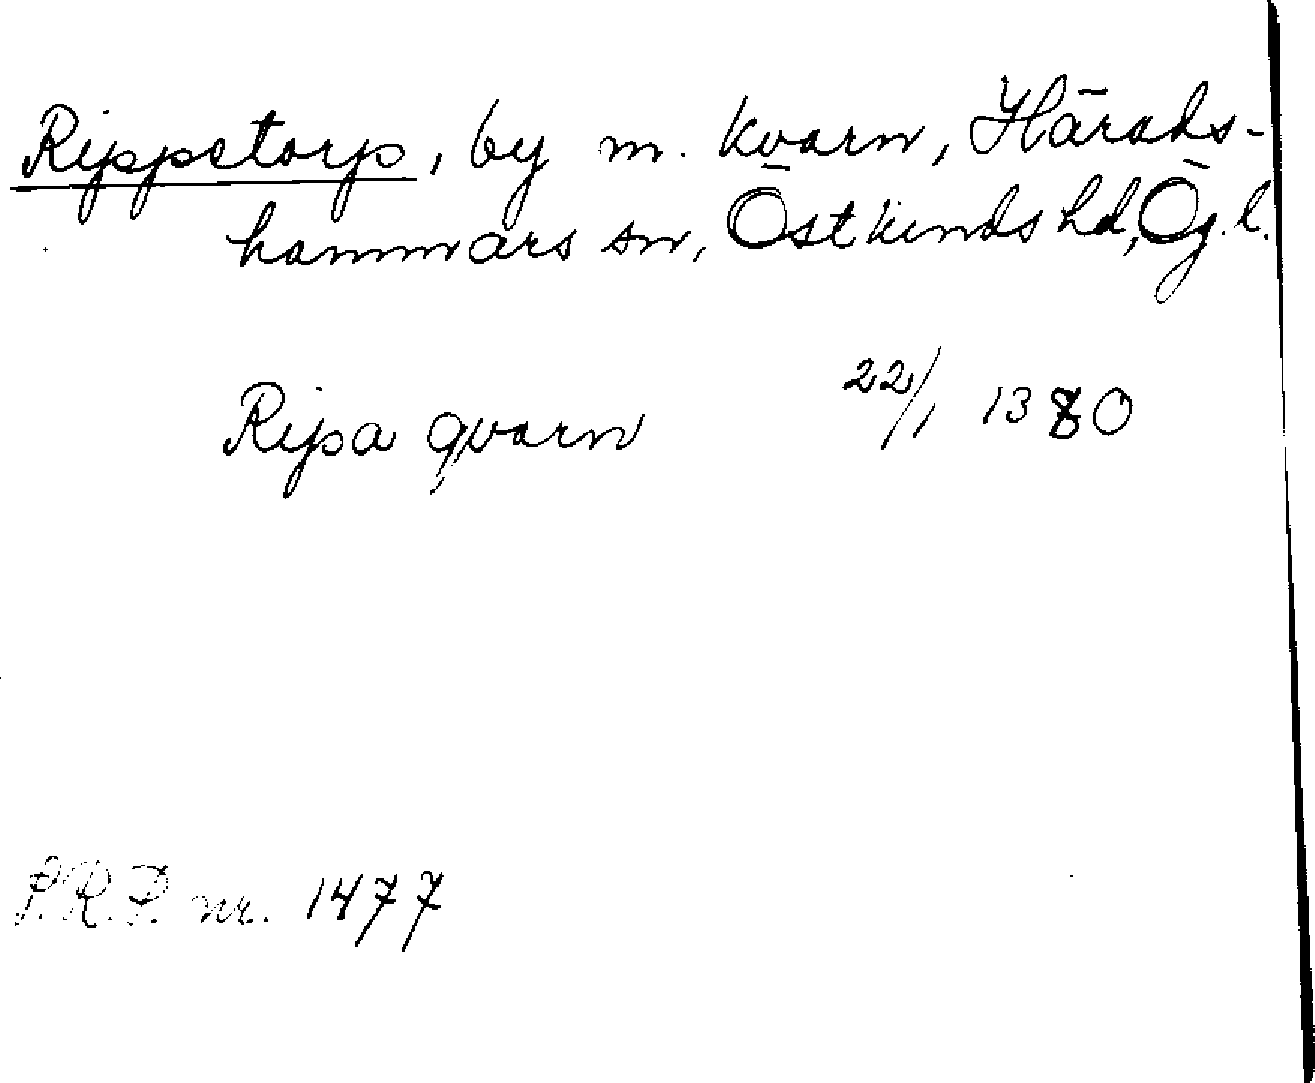 Rippstorp, by m. kvarn, Härads-
hammars sn, Östkinds hd, Ög. l.
Ripa qvarn 22/1 1380
P.R.P. nr. 1477